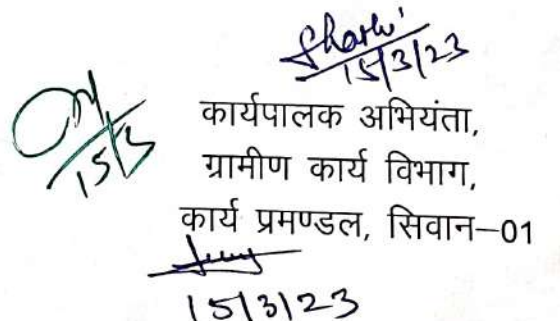 15/3/23
15/3
कार्यपालक अभियंता,
ग्रामीण कार्य विभाग,
कार्य प्रमण्डल, सिवान–01
15/3/23